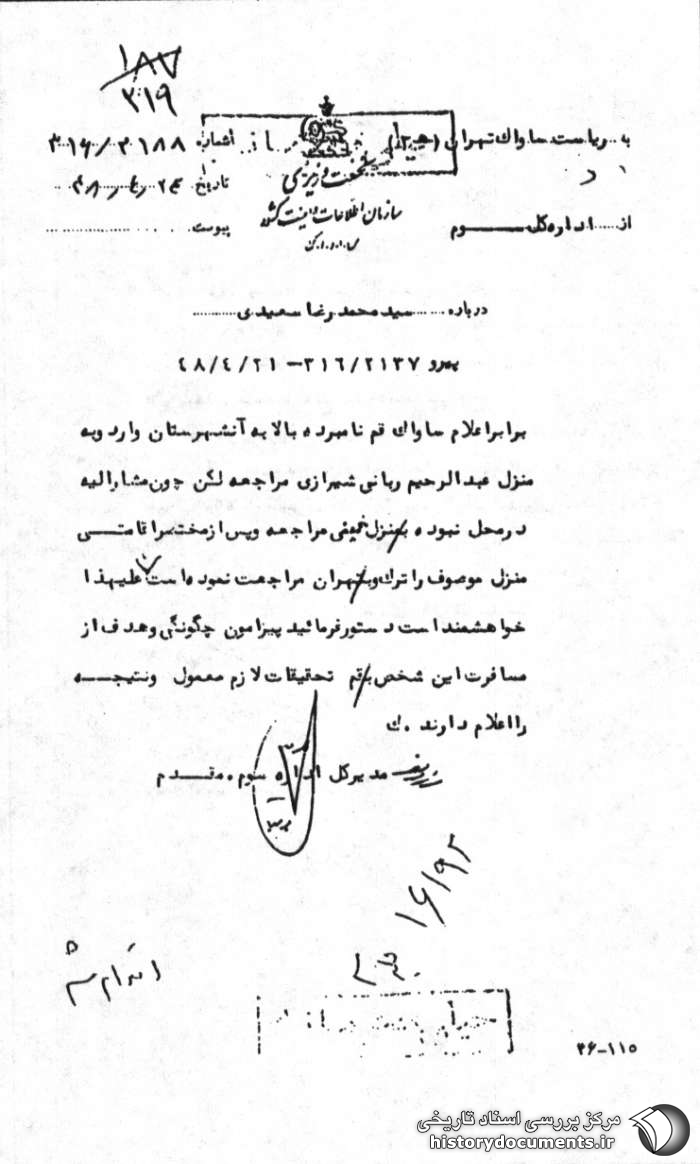 ۱۸۷
۳۱۹
به ریاست ساواک تهران
شماره ۳۱۶/۲۱۸۸
نخست وزیری
تاریخ ۴۸/۴/۲۴
سازمان اطلاعات و امنیت کشور
س.ا.و.ا.ک
از اداره کل سوم
پیوست
درباره سید محمد رضا سعیدی
پیرو ۳۱۶/۲۱۳۷ – ۴۸/۴/۲۱
برابر اعلام ساواک قم نامبرده بالا به آنشهرستان وارد و به
منزل عبدالرحیم ربانی شیرازی مراجعه لکن چون مشارالیه
در محل نبوده بمنزل خمینی مراجعه و پس از مختصر اقامتی
منزل موصوف را ترک و بتهران مراجعت نموده است علیهذا
خواهشمند است دستور فرمائید پیرامون چگونگی و هدف از
مسافرت این شخص بقم تحقیقات لازم معمول و نتیجه
را اعلام دارند . ک
مدیر کل اداره سوم . مقدم
اقدام شد
۳۶-۱۱۵
مرکز بررسی اسناد تاریخی
historydocuments.ir